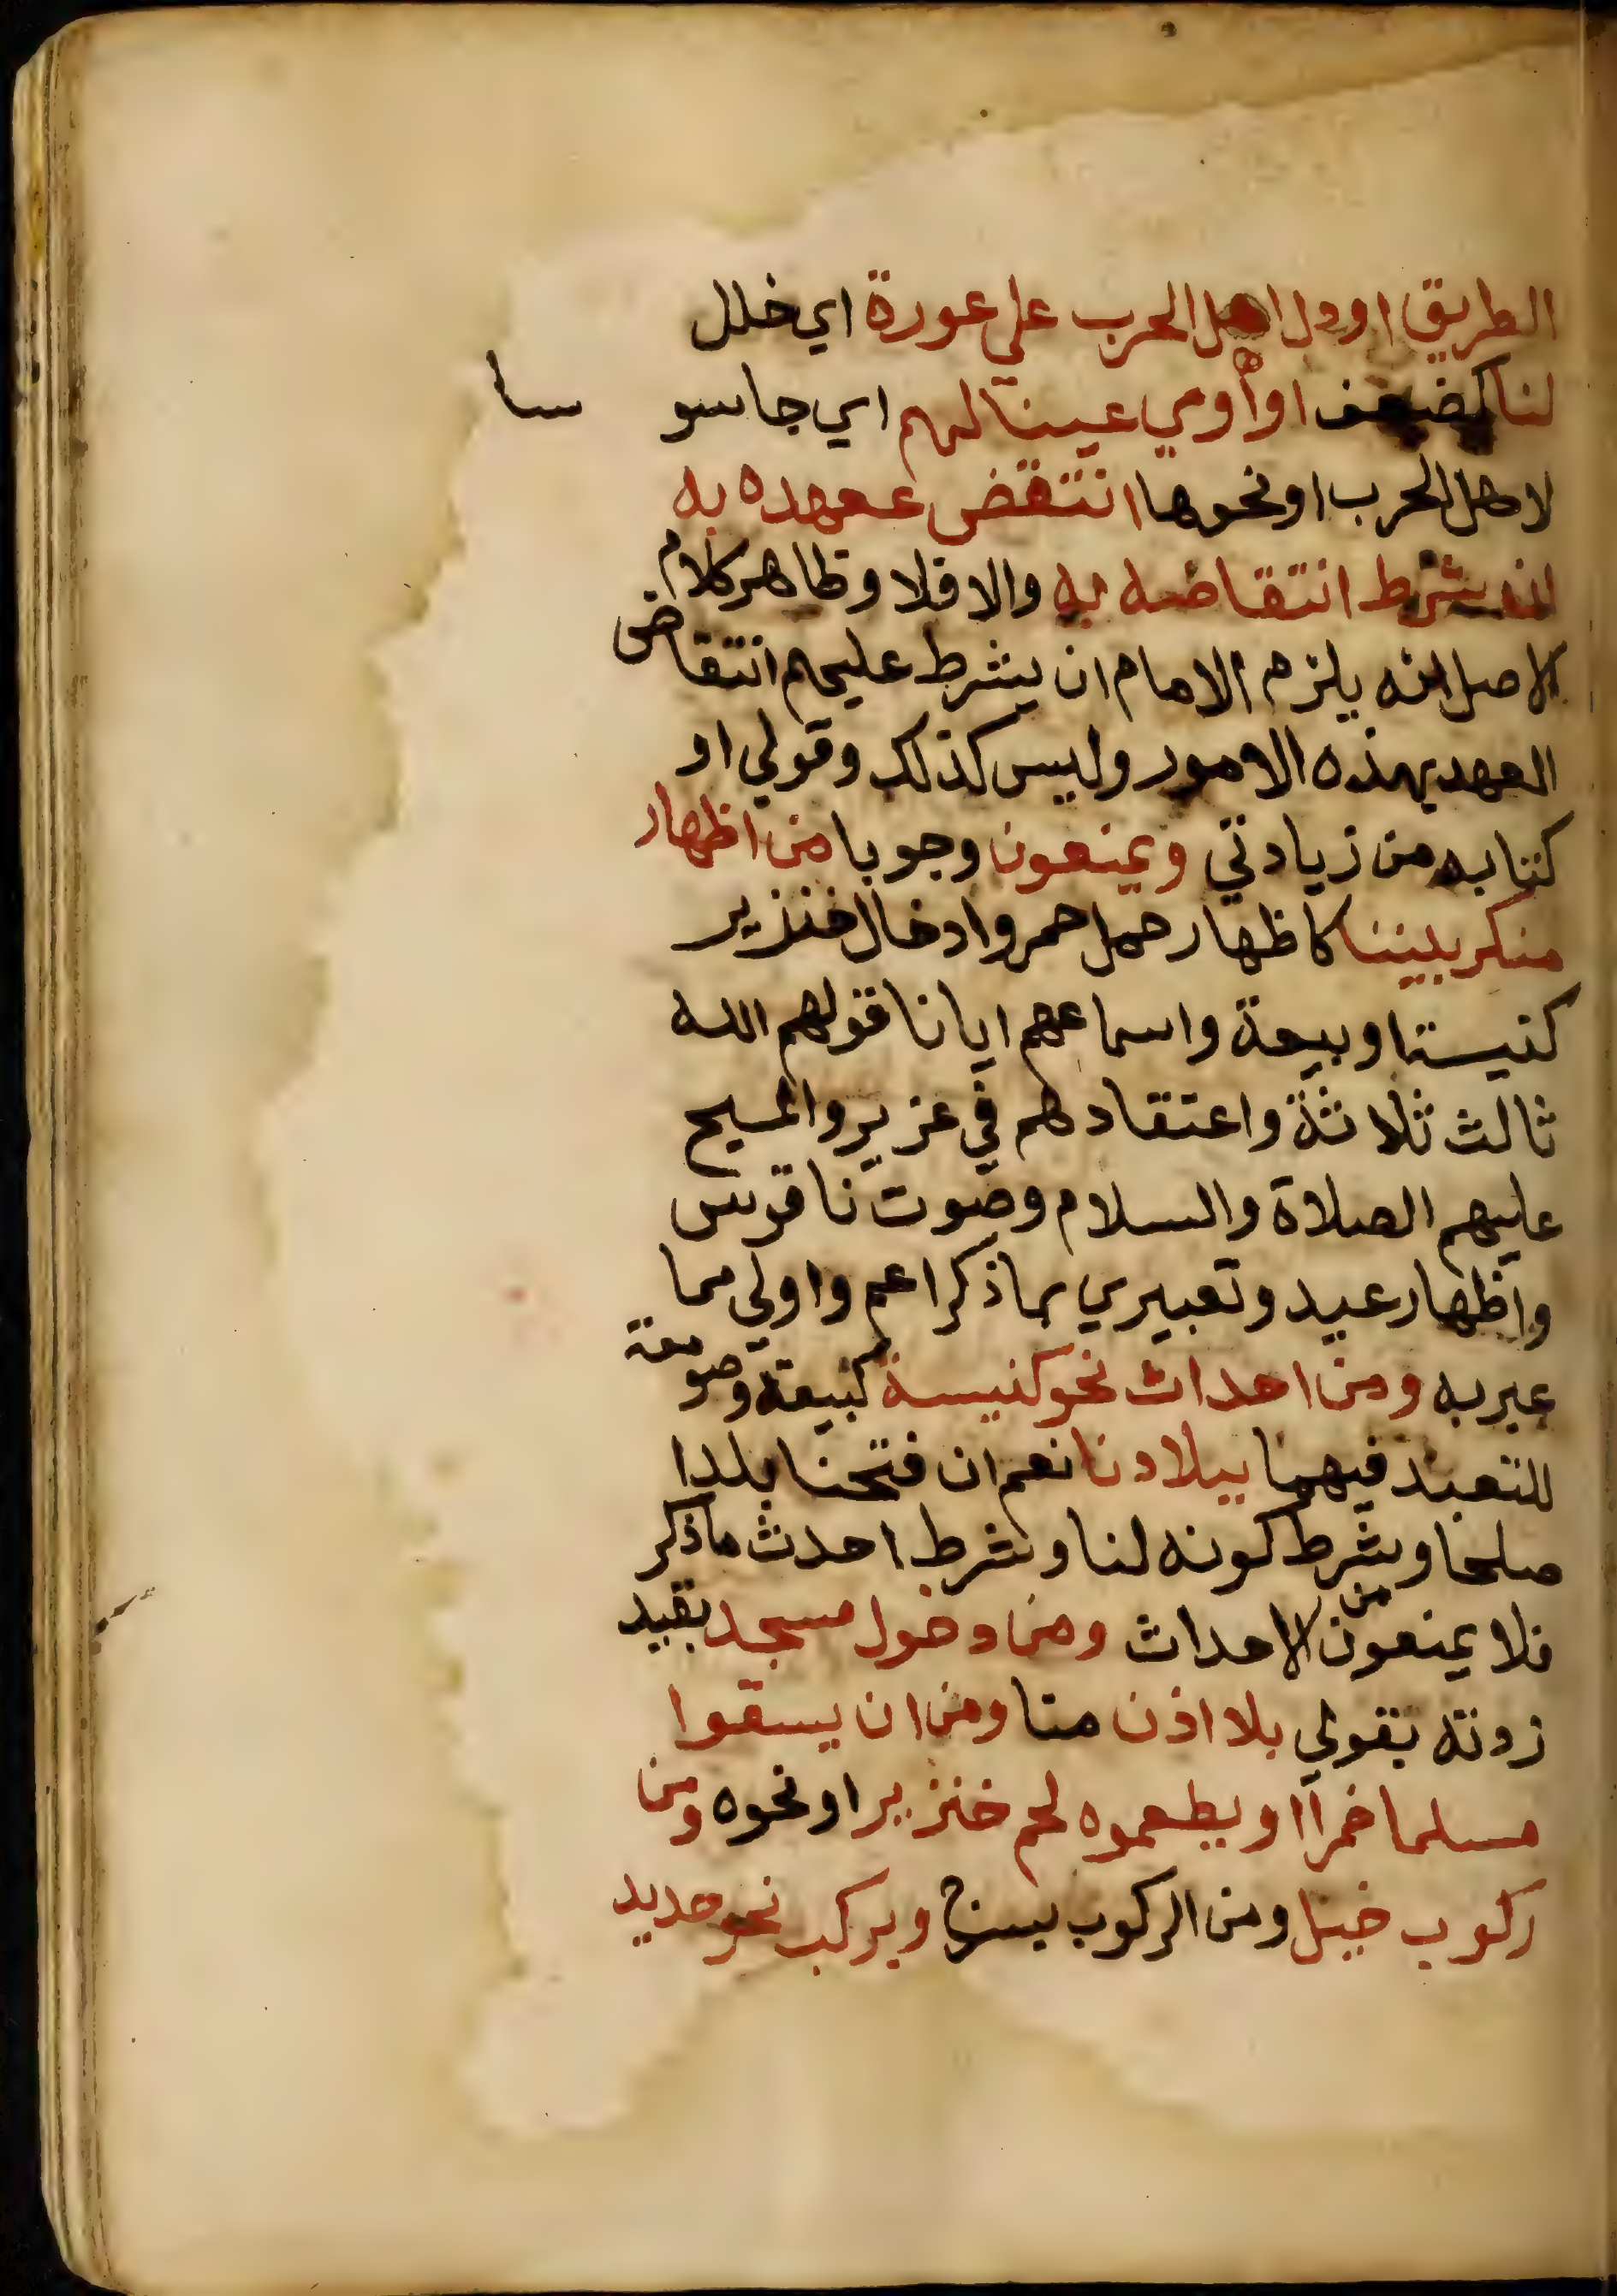 الطريق اودل اهل الحرب على عورة اي خلل
لنا كضعف او أوي عينا لهم اي جاسوسا
لاهل الحرب او نحوها انتقض عهده به
ان شرط انتقاضه به والا فلا وظاهر كلام
الاصل انه يلزم الامام ان يشرط عليهم انتقاض
العهد بهذه الامور وليس كذلك وقولي او
كتابه من زيادتي ويمنعون وجوبا من اظهار
منكر بيننا كاظهار حمل خمر وادخال خنزير
كنيسة او بيعة واسماعهم ايانا قولهم الله
ثالث ثلاثة واعتقادهم في عزير والمسيح
عليهم الصلاة والسلام وصوت ناقوس
واظهار عيد وتعبيري بما ذكر اعم واولي مما
عبر به ومن احداث نحو كنيسة كبيعة وصومعة
للتعبد فيهما ببلادنا نعم ان فتحنا بلدا
صلحا وشرط كونه لنا وشرط احدث ماذكر
فلا يمنعون من الاحداث ومن دخول مسجد بقيد
زدته بقولي بلا اذن منا ومن ان يسقوا
مسلما خمرا او يطعموه لحم خنزير او نحوه ومن
ركوب خيل ومن الركوب بسرج ويركب نحو حديد